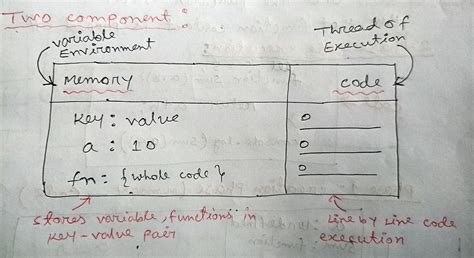 Two component:
variable Environment
Thread of Execution
Memory
code
Key: value
a : 10
fn: {whole code}
stores variable, functions in
key-value pair
Line by Line code
execution